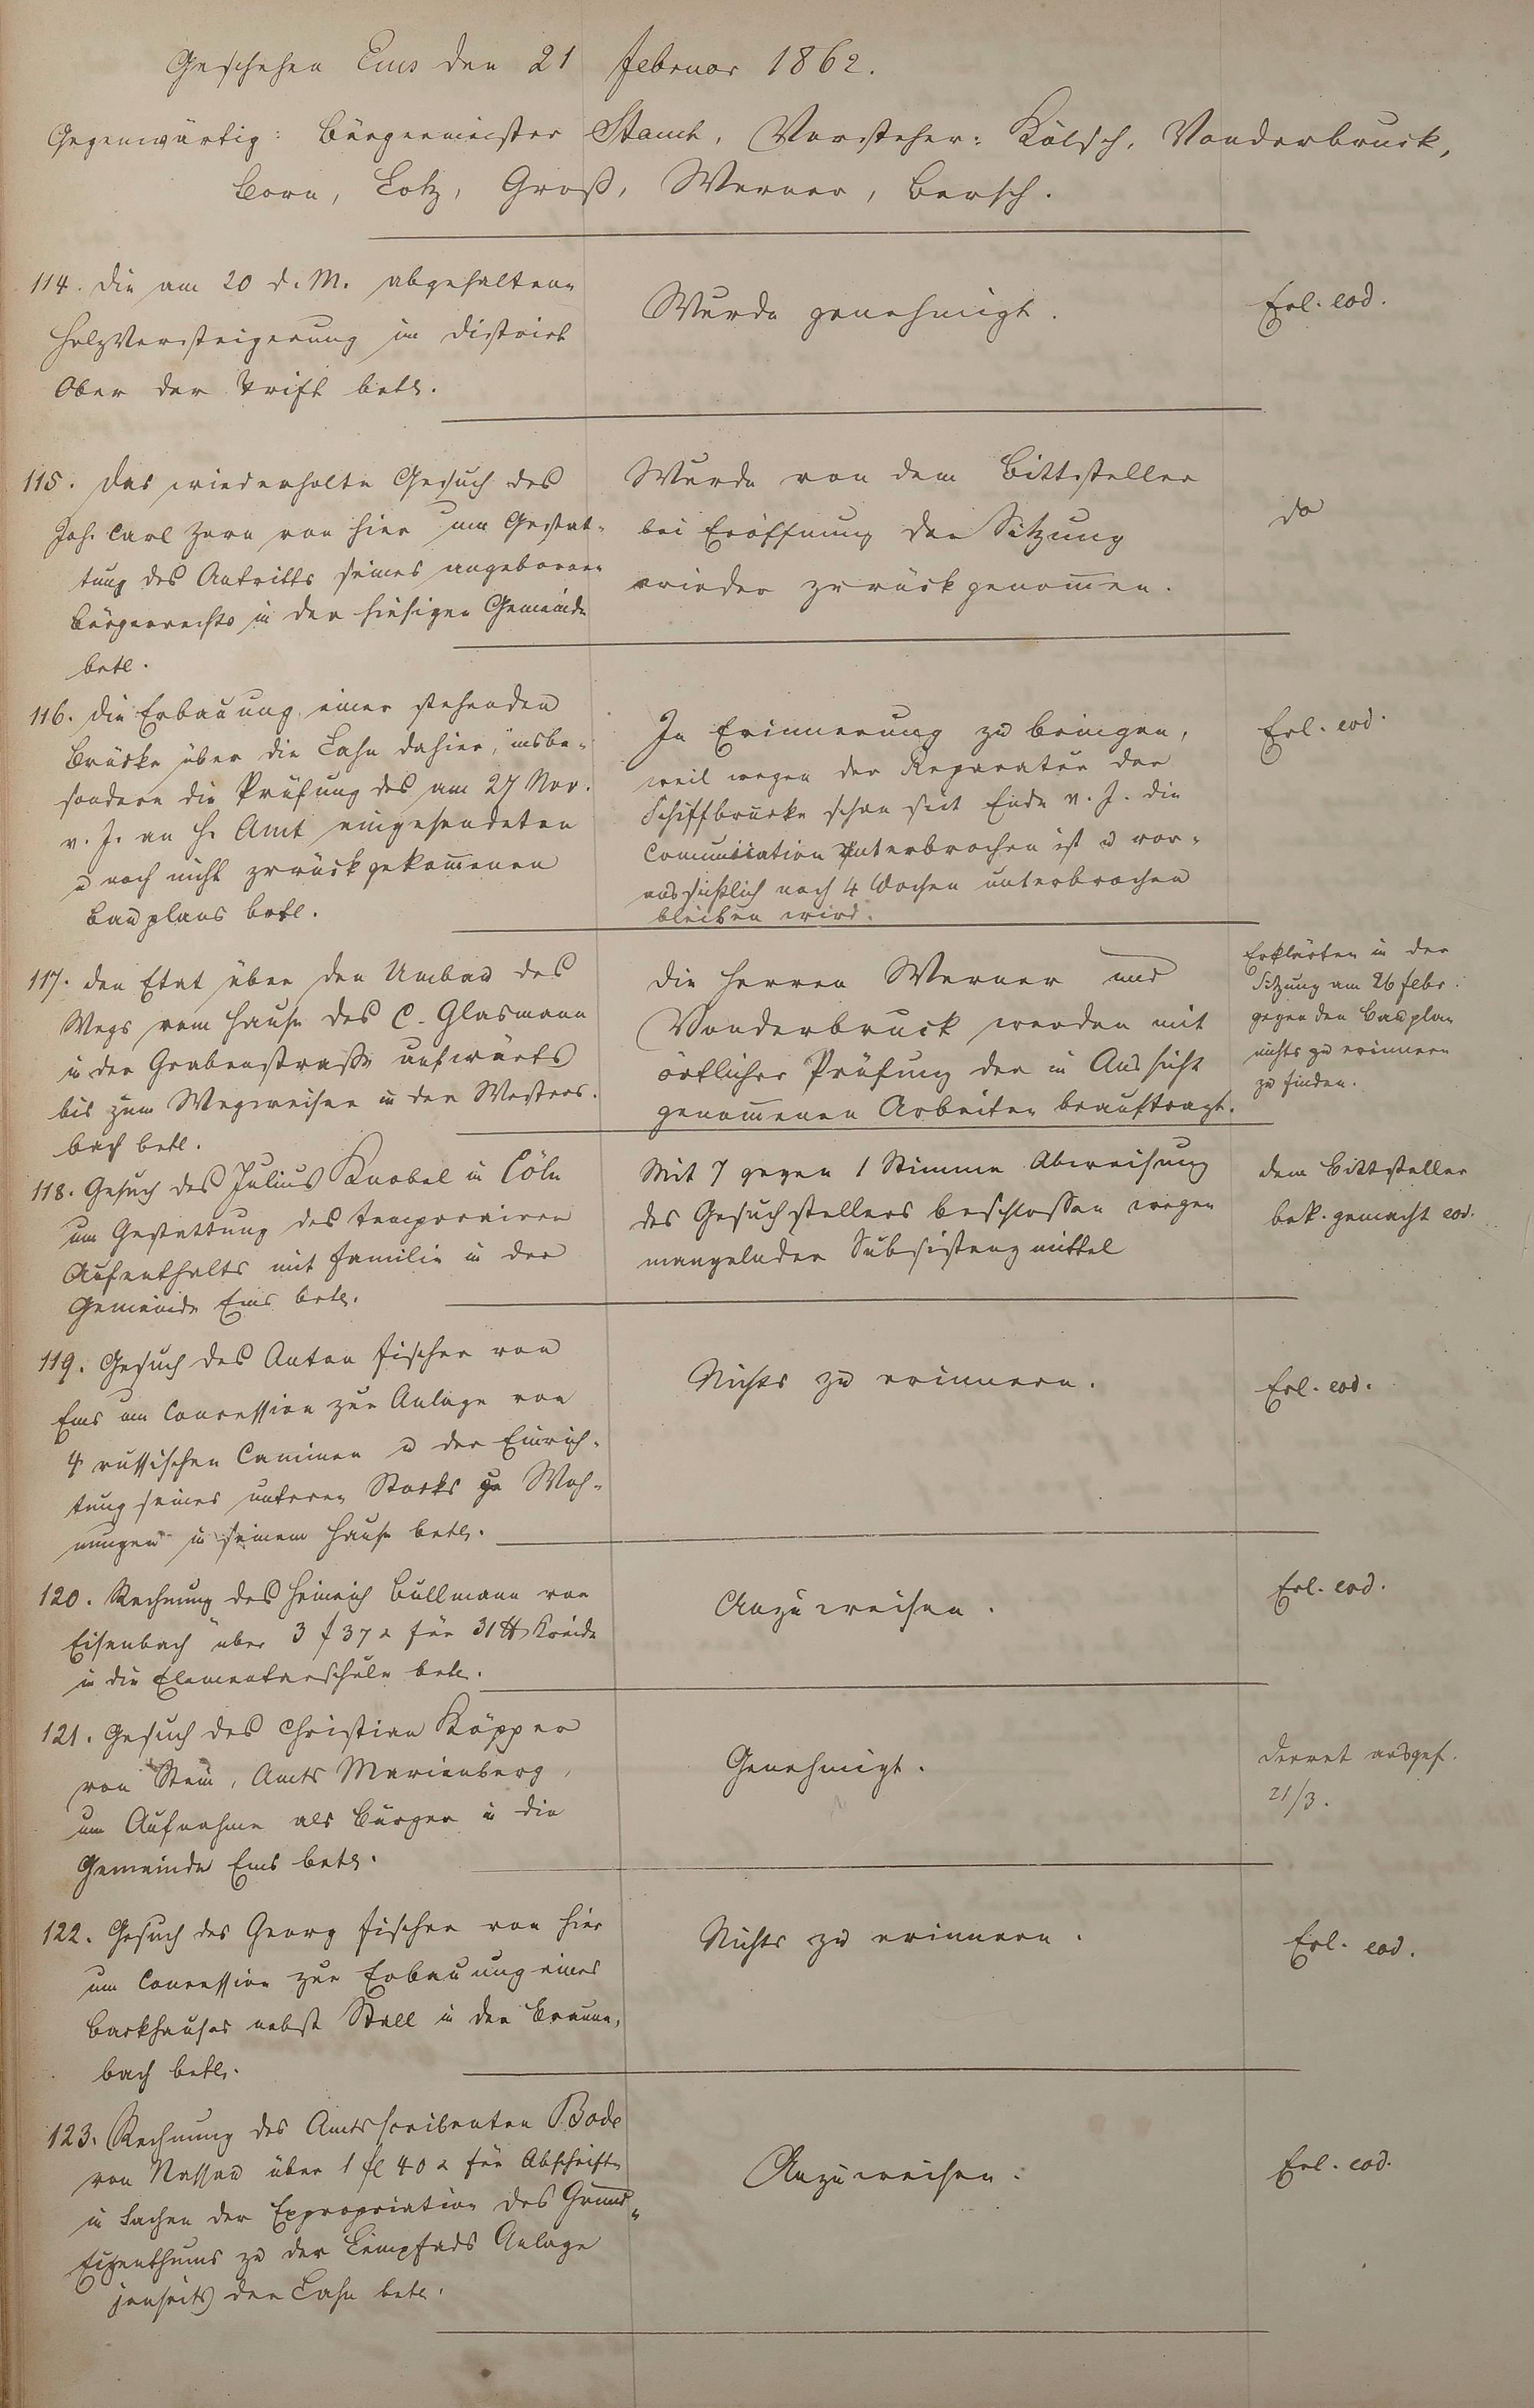 Geschehen Ems den 21 Februar 1862.
Gegenwärtig: Bürgermeister Stamb, Vorsteher: Kölsch, Vonderbruck,
Born, Lotz, Groß, Werner, Bersch.
114. Die am 20 d. M. abgehaltene
Holzversteigerung im District
Ober der Trift betr.
Wurde genehmigt.
Erl. eod.
115. Das wiederholte Gesuch des
Joh. Carl Zorn von hier um Gestat-
tung des Antritts seines angeborenen
Bürgerrechts in der hiesigen Gemeinde
betr.
Wurde von dem Bittsteller
bei Eröffnung der Sitzung
wieder zurückgenommen.
do
116. Die Erbauung einer stehenden
Brücke über die Lahn dahier, insbe-
sondere die Prüfung des am 27 Nov.
v. J. an H. Amt eingesendeten
u noch nicht zurückgekommenen
Bauplans betr.
In Erinnerung zu bringen,
weil wegen der Reparatur der
Schiffbrücke schon seit Ende v. J. die
Communication unterbrochen ist u vor-
aussichtlich noch 4 Wochen unterbrochen
bleiben wird.
Erl. eod.
117. Den Etat über den Umbau des
Wegs vom Hause des C. Glasmann
in der Grabenstraße aufwärts
bis zum Wegweiser in der Wester-
bach betr.
Die Herren Werner und
Vonderbruck werden mit
örtlicher Prüfung der in Aussicht
genommenen Arbeiten beauftragt.
Erklärten in der
Sitzung am 26 Febr.
gegen den Bauplan
nichts zu erinnern
zu finden.
118. Gesuch des Julius Knobel in Cöln
um Gestattung des temporairen
Aufenthalts mit Familie in der
Gemeinde Ems betr.
Mit 7 gegen 1 Stimme Abweisung
des Gesuchstellers beschlossen wegen
mangelnder Subsistenzmittel
dem Bittsteller
bek. gemacht eod.
119. Gesuch des Anton Fischer von
Ems um Concession zur Anlage von
4 russischen Caminen u der Einrich-
tung seines unteren Stocks zu Woh-
nungen in seinem Hause betr.
Nichts zu erinnern.
Erl. eod.
120. Rechnung des Heinrich Bullmann von
Eisenbach über 3 f 37 x für 31 ℔ Kreide
in die Elementarschule betr.
Anzuweisen.
Erl. eod.
121. Gesuch des Christian Käpper
von Stein, Amts Marienberg,
um Aufnahme als Bürger in die
Gemeinde Ems betr.
Genehmigt.
Decret ausgef.
21/3.
122. Gesuch des Georg Fischer von hier
um Concession zur Erbauung eines
Backhauses nebst Stall in der Braun-
bach betr.
Nichts zu erinnern.
Erl. eod.
123. Rechnung des Amtsscribenten Bode
von Nassau über 1 fl 40 x für Abschriften
in Sachen der Expropriation des Grund-
Eigenthums zu der Leinpfads Anlage
jenseits der Lahn betr.
Anzuweisen.
Erl. eod.